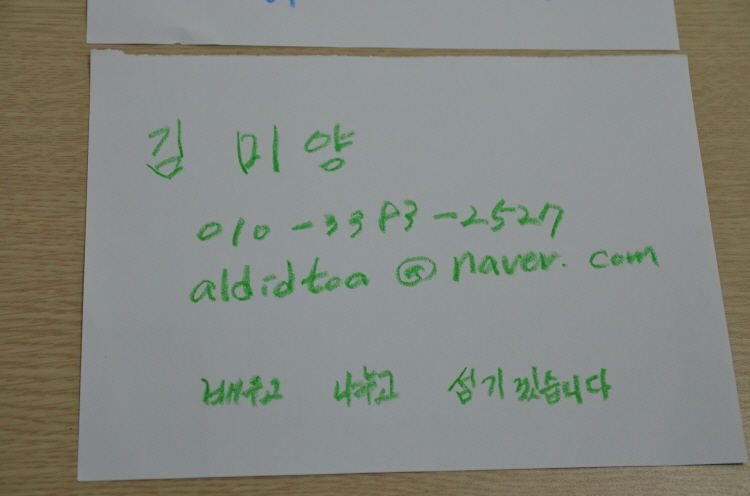 김 미 양
010-3393-2527
aldidtoa@naver.com
배우고 나누고 섬기겠습니다